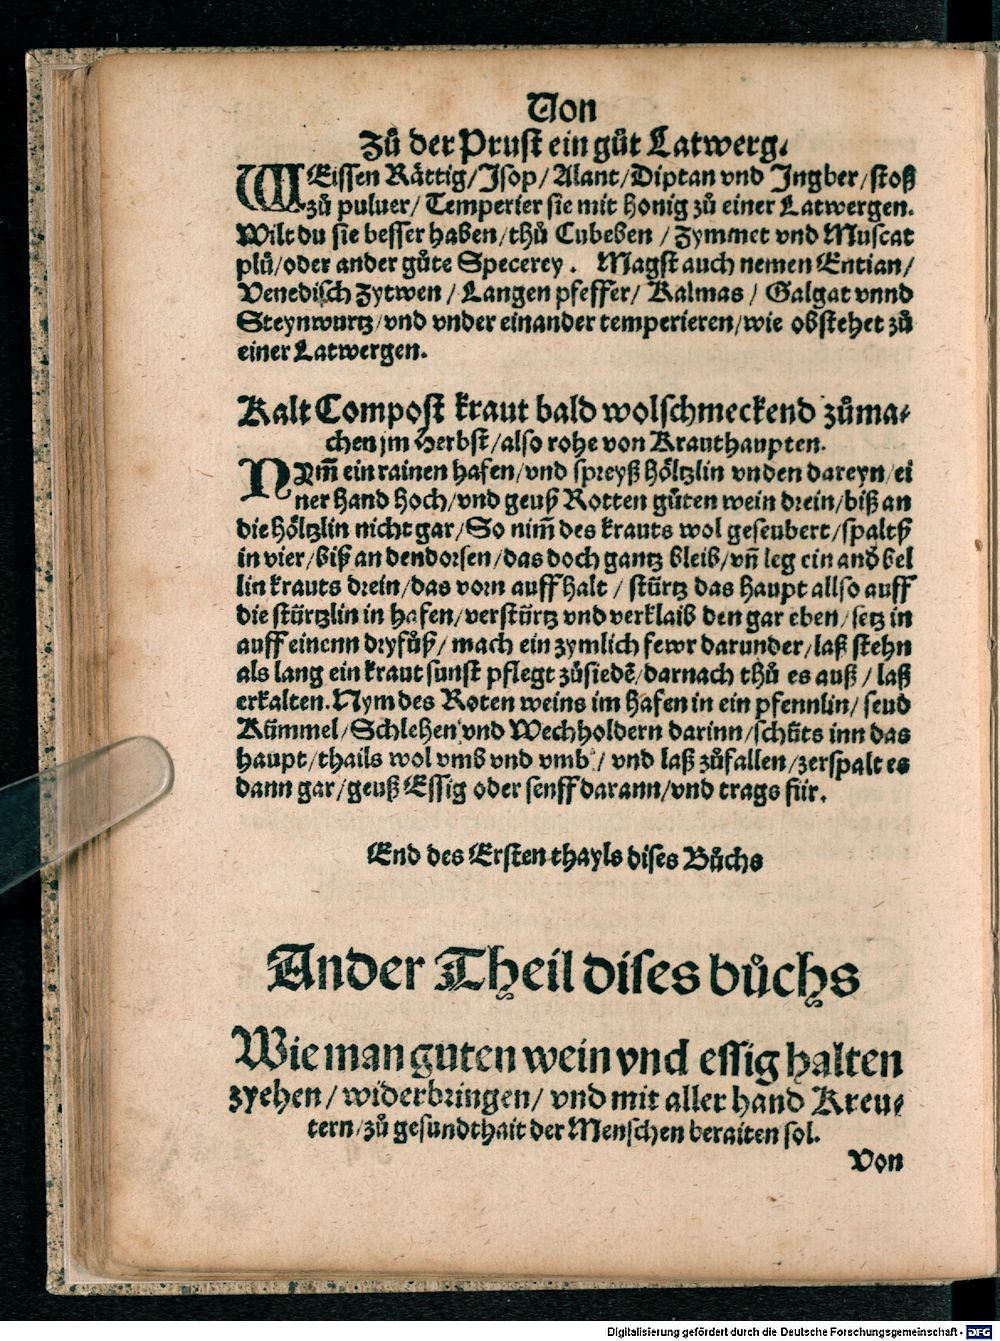 Von
Zů der Prust ein gůt Latwerg.
WEissen Rättig/Jsop/Alant/Diptan vnd Jngber/stoß
zů puluer/Temperier sie mit honig zů einer Latwergen.
Wilt du sie besser haben/thů Cubeben/Zymmet vnd Muscat
plů/oder ander gůte Specerey. Magst auch nemen Entian/
Venedisch Zytwen/Langen pfeffer/Kalmas/Galgat vnnd
Steynwurtz/vnd vnder einander temperieren/wie obstehet zů
einer Latwergen.
Kalt Compost kraut bald wolschmeckend zůma-
chen jm Herbst/also rohe von Krauthaupten.
NYm̃ ein rainen hafen/vnd spreyß höltzlin vnden dareyn/ei
ner hand hoch/vnd geuß Rotten gůten wein drein/biß an
die höltzlin nicht gar/So nim̃ des krauts wol geseubert/spalth
in vier/biß an dendorsen/das doch gantz bleib/vñ leg ein and̊ bel
lin krauts drein/das vorn auff halt/stürtz das haupt allso auff
die stürtzlin in hafen/verstürtz vnd verklaib den gar eben/setz in
auff einenn dryfůß/mach ein zymlich fewr darunder/laß stehn
als lang ein kraut sunst pflegt zůsiedẽ/darnach thů es auß/laß
erkalten. Nym des Roten weins im hafen in ein pfennlin/seud
Kümmel/Schlehen vnd Wechholdern darinn/schüts inn das
haupt/thails wol vmb vnd vmb/vnd laß zůfallen/zerspalt es
dann gar/geuß Essig oder senff darann/vnd trags für.
End des Ersten thayls dises Bůchs
Ander Theil dises bůchs
Wie man guten wein vnd essig halten
zyehen/widerbringen/vnd mit aller hand Kreu-
tern/zů gesundthait der Menschen beraiten sol.
Von
Digitalisierung gefördert durch die Deutsche Forschungsgemeinschaft - DFG